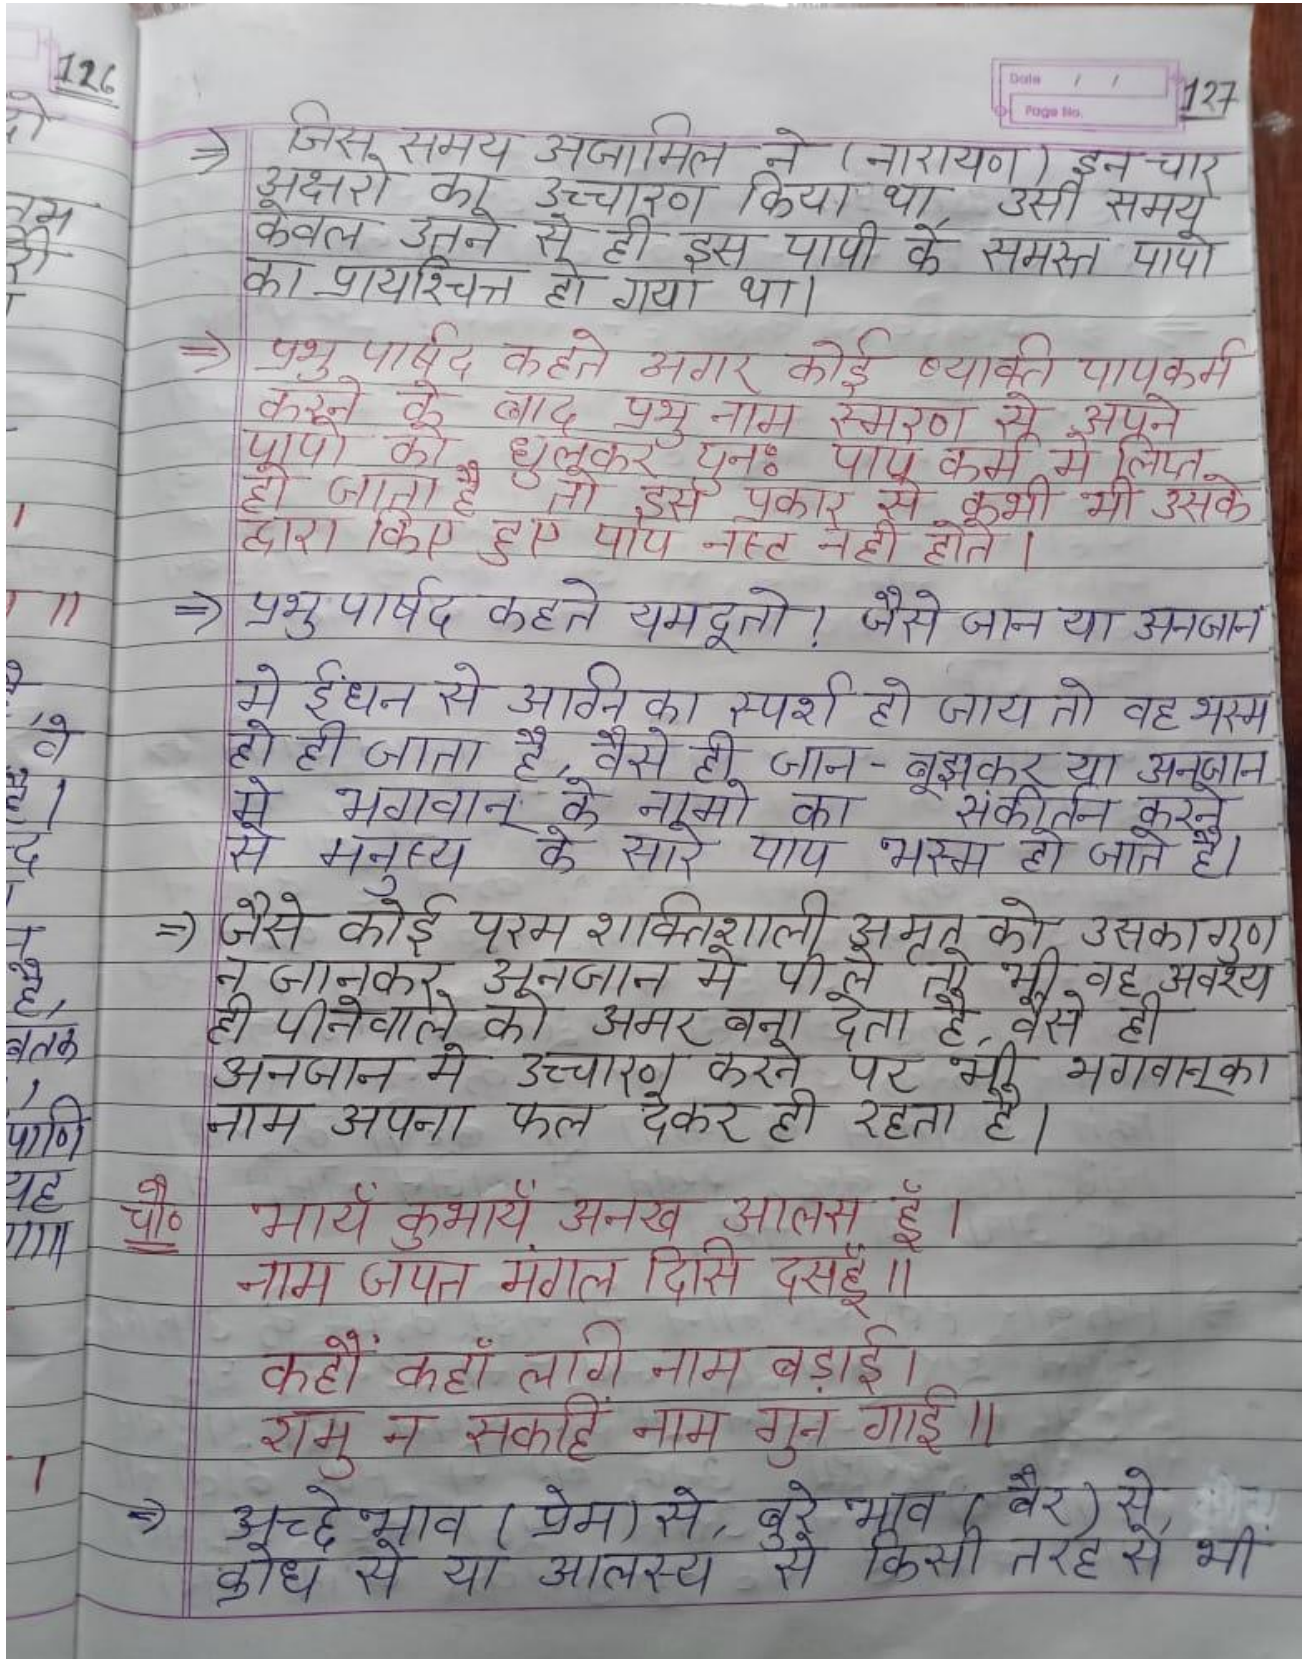 126
Date / /
Page No.
127
=> जिस समय अजामिल ने (नारायण) इन चार
अक्षरो का उच्चारण किया था, उसी समय
केवल उतने से ही इस पापी के समस्त पापो
का प्रायश्चित्त हो गया था।
=> प्रभु पार्षद कहते अगर कोई व्याक्ति पापकर्म
करने के बाद प्रभु नाम स्मरण से अपने
पापो को धुलकर पुनः पाप कर्म मे लिप्त
हो जाता है तो इस प्रकार से कभी भी उसके
द्वारा किए हुए पाप नस्ट नही होते।
=> प्रभु पार्षद कहते यमदूतो! जैसे जान या अनजान
मे ईंधन से अग्नि का स्पर्श हो जाय तो वह भस्म
हो ही जाता है, वैसे ही जान-बूझकर या अनजान
मे भगवान् के नामो का संकीर्तन करने
से मनुस्य के सारे पाप भस्म हो जाते है।
=> जैसे कोई परम शक्तिशाली अमृत को उसका गुण
न जानकर अनजान मे पी ले तो भी वह अवश्य
ही पीनेवाले को अमर बना देता है, वैसे ही
अनजान मे उच्चारण करने पर भी भगवान् का
नाम अपना फल देकर ही रहता है।
चौ० भायँ कुभायँ अनख आलस हूँ।
नाम जपत मंगल दिसि दसहूँ॥
कहौं कहाँ लगि नाम बड़ाई।
रामु न सकहिं नाम गुन गाई॥
=> अच्छे भाव (प्रेम) से, बुरे भाव (बैर) से,
क्रोध से या आलस्य से किसी तरह से भी